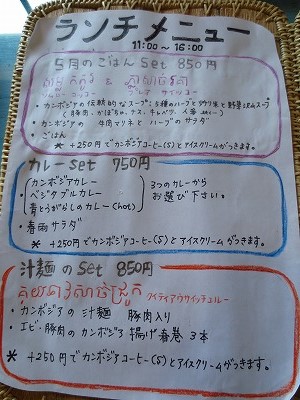 ランチメニュー
11:00～16:00
5月のごはん set 850円
&
・カンボジアの伝統的なスープ
(豚肉、かぼちゃ、ナス、キャベツ、人参
・カンボジアの 牛肉マリネとハーブのサラダ
・ごはん
* +250円でカンボジアコーヒー(S)とアイスクリームがつきます。
カレーset 750円
・カンボジアカレー
・ベジタブルカレー
・青とうがらしのカレー(hot)
3つのカレーから
お選び下さい。
・春雨サラダ
* +250円でカンボジアコーヒー(S)とアイスクリームがつきます。
汁麺のset 850円
គុយទាវសាច់ជ្រូក クイティアウサイッチュルー
・カンボジアの 汁麺 豚肉入り
・エビ・豚肉のカンボジア揚げ春巻 3本
* +250円でカンボジアコーヒー(S)とアイスクリームがつきます。